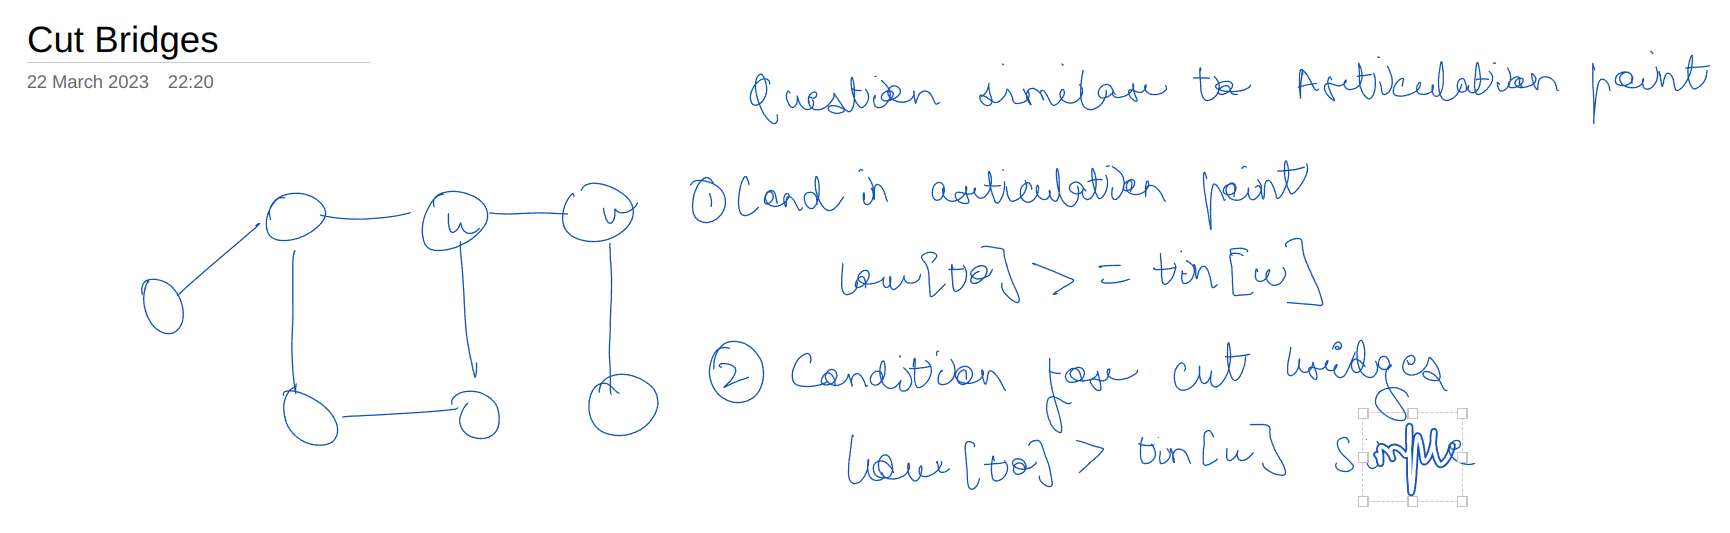 Cut Bridges
22 March 2023 22:20
Question similar to Articulation point
u
v
① Cond in articulation point
low[to] >= tin[u]
② Condition for cut bridges
low[to] > tin[u] simple